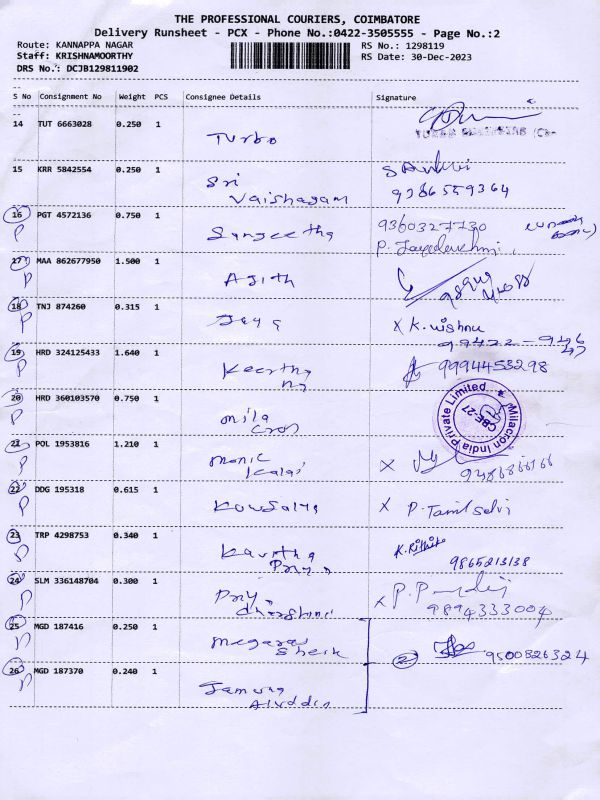 THE PROFESSIONAL COURIERS, COIMBATORE
Delivery Runsheet - PCX - Phone No.:0422-3505555 - Page No.:2
Route: KANNAPPA NAGAR RS No.: 1298119
Staff: KRISHNAMOORTHY RS Date: 30-Dec-2023
DRS No.: DCJB129811902
S No Consignment No Weight PCS Consignee Details Signature
14 TUT 6663028 0.250 1 Turbo
15 KRR 5842554 0.250 1 Sri
Vaishagam 9386559364
16 PGT 4572136 0.750 1 Sangeetha 9360327730
P
17 MAA 862677950 1.500 1 Ajith
P
18 TNJ 874260 0.315 1 Jaya X K. vishnu
P
19 HRD 324125433 1.640 1 Keertha 9994453298
P
20 HRD 360103570 0.750 1 Mila
cron
P
Milacron India Private Limited
CBE-27
21 POL 1953816 1.210 1 Monic
Kalai X
P
22 DDG 195318 0.615 1 Kowsalya X P. Tamil selvi
P
23 TRP 4298753 0.340 1 Kavitha
Priya K. Rithik
9865213138
P
24 SLM 336148704 0.300 1 Priya
dharshini X
9894333004
P
25 MGD 187416 0.250 1 Megaraj
Sheik 2 9500826324
P
26 MGD 187370 0.240 1 Jamuna
Aluddin
P